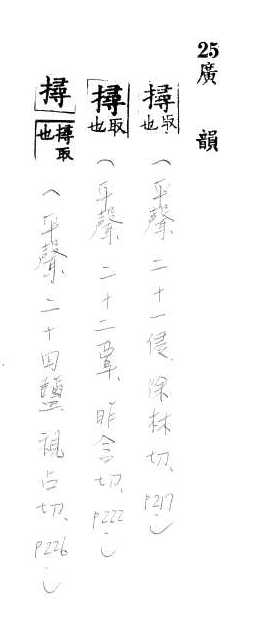 25 廣韻
撏 取也 (平聲 二十一侵、除林切、P217.)
撏 取也 (平聲 二十二覃、昨含切、P222.)
撏 撏取也 (平聲 二十四鹽 視占切、P226.)